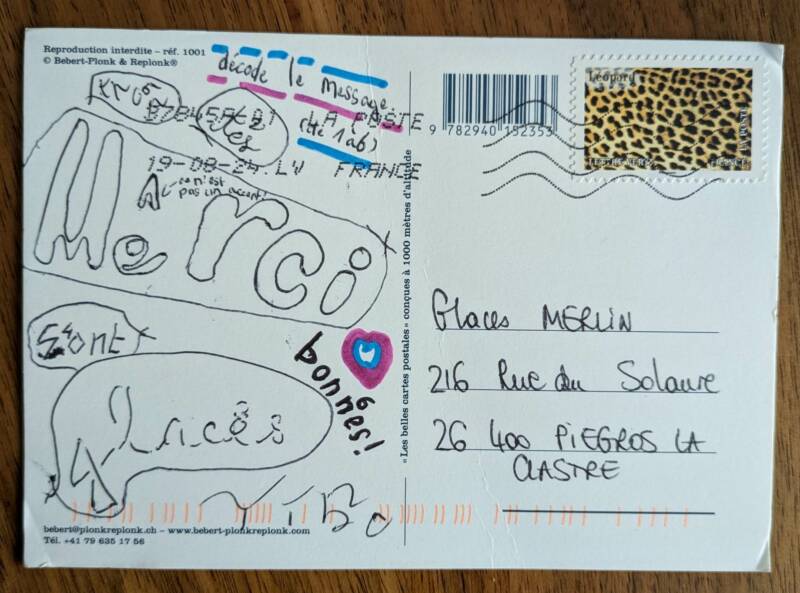 Reproduction interdite – réf. 1001
© Bebert-Plonk & Replonk®
décode le message
(de 1 à 6)
LA POSTE
19-08-24 LV FRANCE
ce n'est
pas un accent!
Merci
sont
bonnes!
Glaces
YTBO
bebert@plonkreplonk.ch – www.bebert-plonkreplonk.com
Tél. +41 79 635 17 56
«Les belles cartes postales» conçues à 1000 mètres d'altitude
9 782940 152353
Léopard
LETTRE VERTE
FRANCE
LA POSTE
Glaces MERLIN
216 Rue du Solaure
26 400 PIEGROS LA
CLASTRE